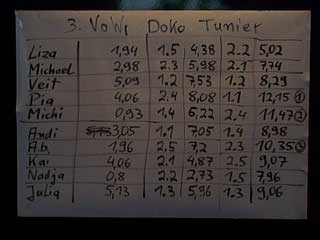 3. VoWi DoKo Tunier
Liza 1,94 1.5 4,38 2.2 5,02
Michael 2,98 2.3 5,98 2.1 7,74
Veit 5,09 1.2 7,53 1.2 8,29
Pia 4,06 2.4 8,08 1.1 12,15 1
Michi 0,93 1.4 6,22 2.4 11,47 2
Andi 3,05 1.1 7,05 1.4 8,98
A.b. 1,96 2.5 7,2 2.3 10,35 3
Kai 4,06 2.1 4,87 2.5 9,07
Nadja 0,8 2.2 2,73 1.5 7,96
Julia 5,13 1.3 5,96 1.3 9,06